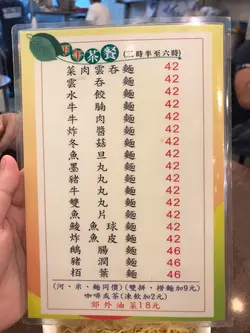 下午茶餐(二時半至六時)
菜肉雲吞麵 42
雲吞麵 42
水餃麵 42
牛腩麵 42
牛肉麵 42
炸醬麵 42
冬菇麵 42
魚旦麵 42
墨丸麵 42
豬丸麵 42
牛丸麵 42
雙丸麵 42
魚片麵 42
鯪魚球麵 42
炸魚皮麵 42
鵝腸麵 46
豬潤麵 46
栢葉麵 46
(河、米、麵同價)(雙拼、撈麵加9元)
咖啡或茶(凍飲加2元)
郊外油菜18元